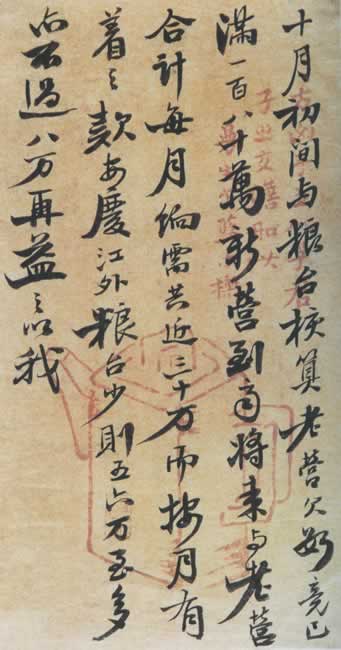 十月初间与粮台核算老營欠餉竟已
满一百八十萬新營到将来与老營
合计每月餉需共近三十万而按月有
着之款安慶江外粮台少则五六万至多
亦不過八万再益之以我